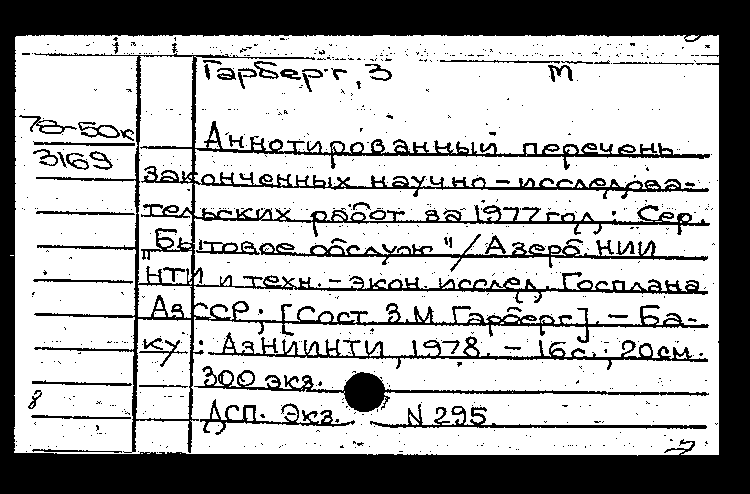 Гарберг, З м
78-50к
3169
Аннотированный перечень
законченных научно-исследова-
тельских работ за 1977 год,: Сер.
"Бытовое обслуж"/Азерб. НИИ
НТИ и техн.-экон. исслед. Госплана
АзССР; [Сост. З.М. Гарберг]. - Ба-
ку: АзНИИНТИ, 1978. - 16с.; 20см.
300 экз.
8
ДСП. Экз. N 295.